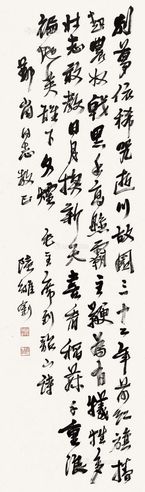 別夢依稀咒逝川故園三十二年前紅旗捲
起農奴戟黑手高懸霸主鞭為有犧牲多
壯志敢教日月換新天喜看稻菽千重浪
遍地英雄下夕煙 毛主席到韶山詩
同志教正 陸維釗